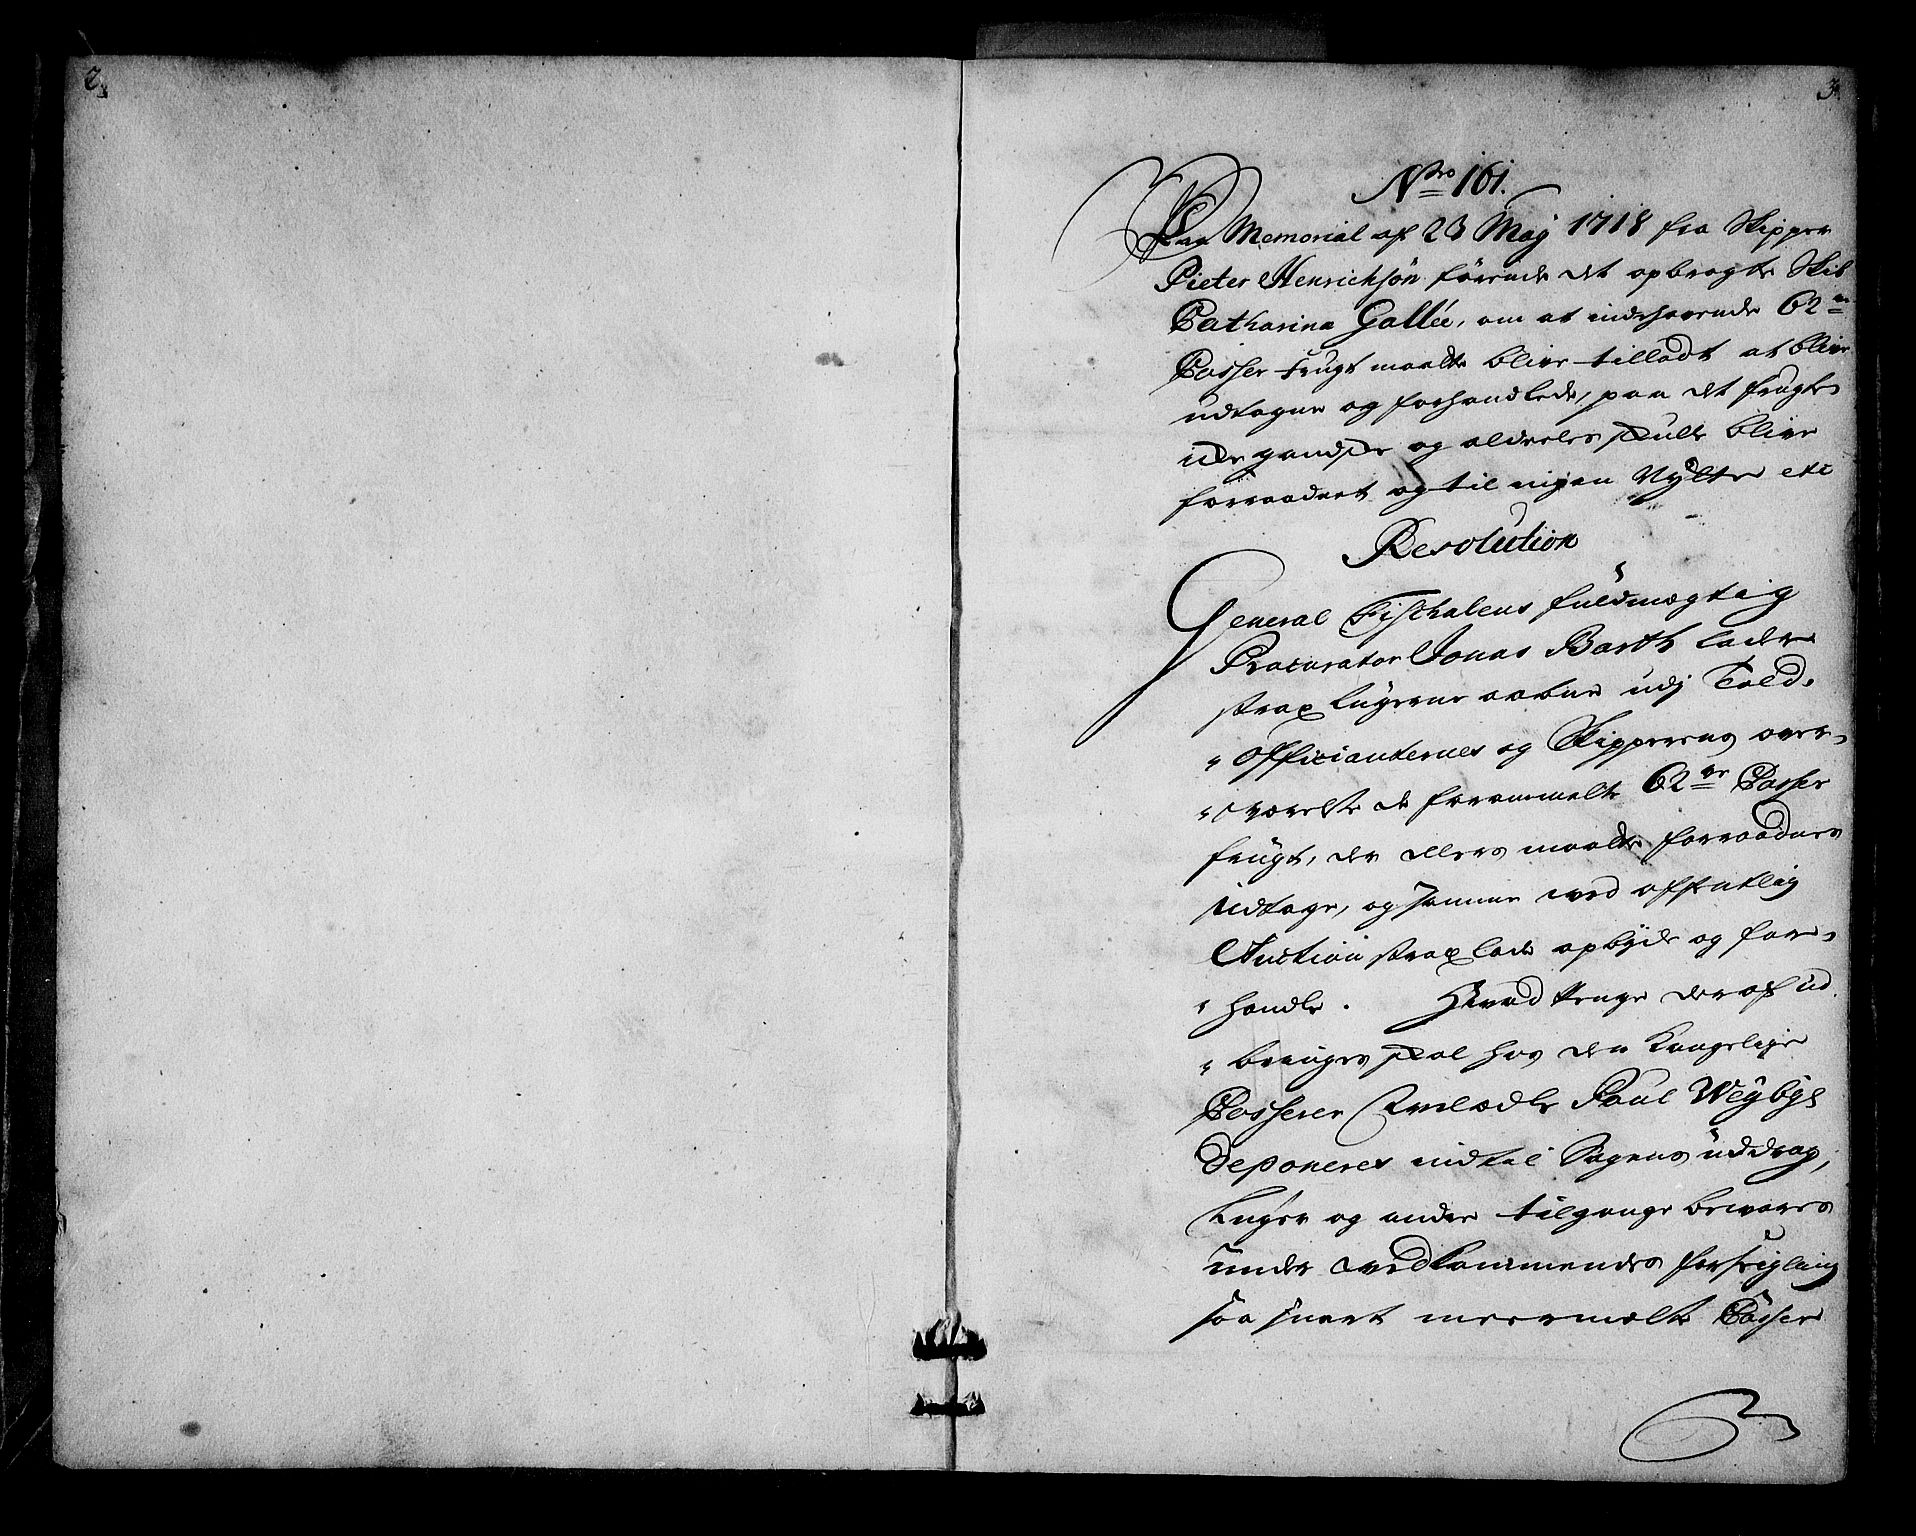 2.
3.
Nro 161.
Paa Memorial af 23 Maÿ 1718 fra Skipper
Pieter Henrichsön förende det opbragte Skib
Catharina Galléi, om at indehavende 62de
Casser Frugt maatte blive tilladt at blive
udtagne og forhandlede, paa det Frugten
icke gandske og aldeeles skulle blive
forraadnet og til ingen Nÿtte etc
Resolution
General Fischalens fuldmægtig
Procurator Jonas Barth lader
strax Lugerne aabne udj Told-
officianternes og Skipperens over-
værelse de forommelte 62de Casser
frugt, der ellers maatte forraadnes
udtage, og samme ved offentlig
Auction strax lade opbÿde og for-
handle. Hvad Penge deraf ud-
bringes skal hos den Kongelige
Casserer Paul Weÿbÿe
Deponeres indtil Sagens uddrag,
Luger og andre tilgange bevares
under vedkommendes forseigling
saa snart meermelte Casser